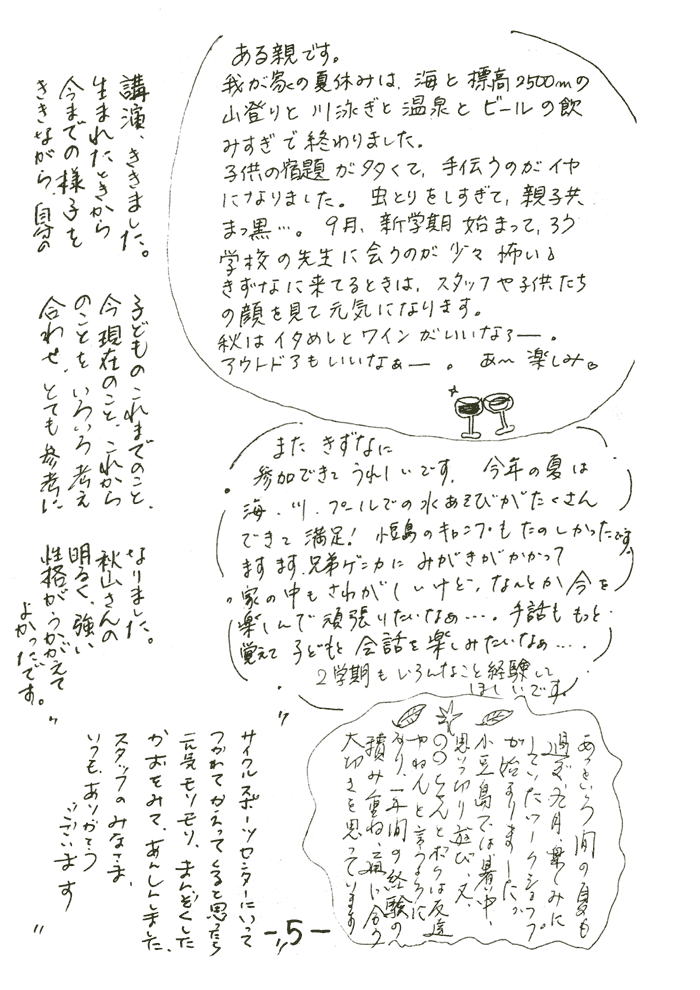 ある親です。
我が家の夏休みは、海と標高2500mの
山登りと川泳ぎと温泉とビールの飲
みすぎで終わりました。
子供の宿題が多くて、手伝うのがイヤ
になりました。虫とりをしすぎて、親子共
まっ黒…。9月、新学期始まって、ろう
学校の先生に会うのが少々怖い♪
きずなに来てるときは、スタッフや子供たち
の顔を見て元気になります。
秋はイタめしとワインがいいなぁー。
アウトドアもいいなぁー。あ〜楽しみ。
また きずなに
参加できて うれしいです。今年の夏は
海、川、プールでの水あそびがたくさん
できて満足! 小豆島のキャンプもたのしかったです。
ますます、兄弟ゲンカに みがきがかかって
家の中もさわがしいけど、なんとか今を
楽しんで頑張りたいなぁ…。手話ももっと
覚えて子どもと会話を楽しみたいなぁ…。
2学期もいろんなこと経験して
ほしいです。
講演、ききました。
生まれたときから
今までの様子を
ききながら、自分の
子どものこれまでのこと、
今現在のこと、これから
のことを、いろいろ考え
合わせ、とても参考に
なりました。
秋山さんの
明るく、強い
性格がうかがえて
よかったです。"
あっという間の夏も
過ぎ、九月、楽しみに
していたワークショップ
が始まりました。
小豆島では暑い中、
思いっ切り遊び、又、
〇〇ちゃんとボクは友達
やねんと言うように
なり、一年間の経験の
積み重ね、通じ合う
大切さを思っています
"
サイクルスポーツセンターにいって
つかれてかえってくると思ったら
元気モリモリ、まんぞくした
かおをみて、あんしんしました。
スタッフのみなさま、
いつも、ありがとう
ございます
"
-5-